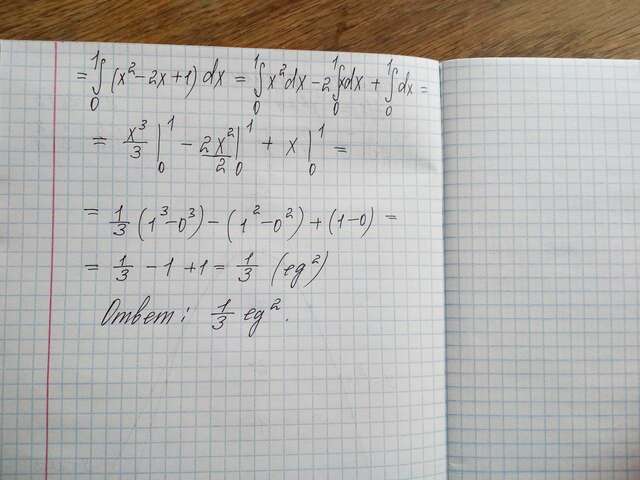 = ∫₀¹ (x² - 2x + 1) dx = ∫₀¹ x² dx - 2 ∫₀¹ x dx + ∫₀¹ dx =
= x³/3 |₀¹ - 2x²/2 |₀¹ + x |₀¹ =
= 1/3 (1³ - 0³) - (1² - 0²) + (1 - 0) =
= 1/3 - 1 + 1 = 1/3 (ед²)
Ответ: 1/3 ед².